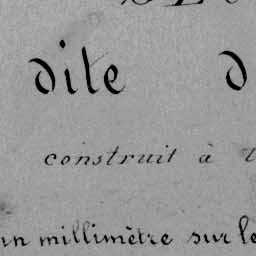 dite d
construit à
un millimètre sur le